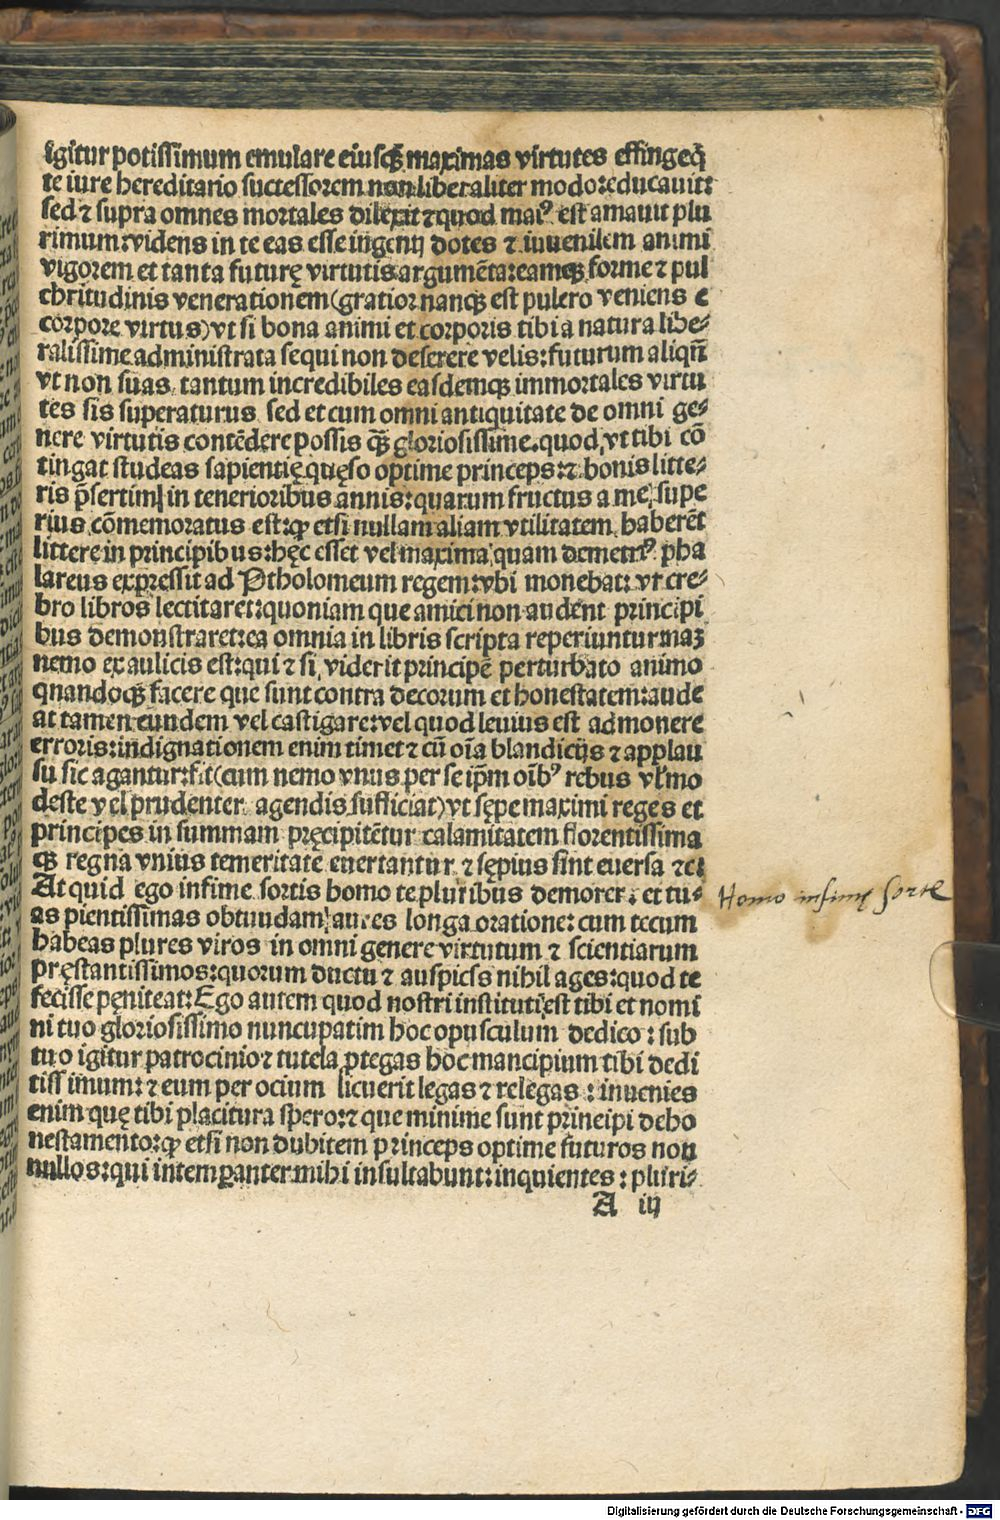 igitur potissimum emulare eiusqꝫ maximas virtutes effingeqꝫ
te iure hereditario successorem non liberaliter modo: educauit:
sed ⁊ supra omnes mortales dilexit ⁊ quod maiꝰ est amauit plu
rimum: videns in te eas esse ingenij dotes ⁊ iuuenilem animi
vigorem et tanta futurę virtutis argumēta: eamqꝫ forme ⁊ pul
chritudinis venerationem (gratior nanqꝫ est pulcro veniens e
corpore virtus) vt si bona animi et corporis tibi a natura libe⸗
ralissime administrata sequi non deserere velis: futurum aliqñ
vt non suas tantum incredibiles easdemqꝫ immortales virtu
tes sis superaturus sed et cum omni antiquitate de omni ge⸗
nere virtutis contēdere possis qꝫ̄ gloriosissime. quod vt tibi cō
tingat studeas sapientię quęso optime princeps: ⁊ bonis litte⸗
ris p̄sertim in tenerioribus annis: quarum fructus a me supe
rius cōmemoratus est: ꝙ etsi nullam aliam vtilitatem haberēt
littere in principibus: hęc esset vel maxima quam demetriꝰ pha
lareus expressit ad Ptholomeum regem: vbi monebat: vt cre⸗
bro libros lectitaret: quoniam que amici non audent principi
bus demonstraret: ea omnia in libris scripta reperiuntur: naꝫ
nemo ex aulicis est: qui ⁊ si viderit principē perturbato animo
quandoqꝫ facere que sunt contra decorum et honestatem: aude
at tamen eundem vel castigare: vel quod leuius est admonere
erroris: indignationem enim timet ⁊ cū oīa blandicijs ⁊ applau
su sic agantur: fit (cum nemo vnus per se ip̄m oībꝰ rebus vl̓ mo
deste vel prudenter agendis sufficiat) vt sępe maximi reges et
principes in summam pręcipitētur calamitatem florentissima
qꝫ regna vnius temeritate euertantur ⁊ sępius sint euersa ⁊c:
At quid ego infime sortis homo te pluribus demorer: et tu⸗
as pientissimas obtundam aures longa oratione: cum tecum
habeas plures viros in omni genere virtutum ⁊ scientiarum
pręstantissimos: quorum ductu ⁊ auspicijs nihil ages: quod te
fecisse pęniteat: Ego autem quod nostri instituti est tibi et nomi
ni tuo gloriosissimo nuncupatim hoc opusculum dedico: sub
tuo igitur patrocinio ⁊ tutela ꝓtegas hoc mancipium tibi dedi
tissimum: ⁊ eum per ocium licuerit legas ⁊ relegas: inuenies
enim quę tibi placitura spero: ⁊ que minime sunt principi deho
nestamento: ꝙ etsi non dubitem princeps optime futuros non
nullos: qui intemꝑanter mihi insultabunt: inquientes: pluri⸗
A iij
Homo infimę sortis
Digitalisierung gefördert durch die Deutsche Forschungsgemeinschaft - DFG